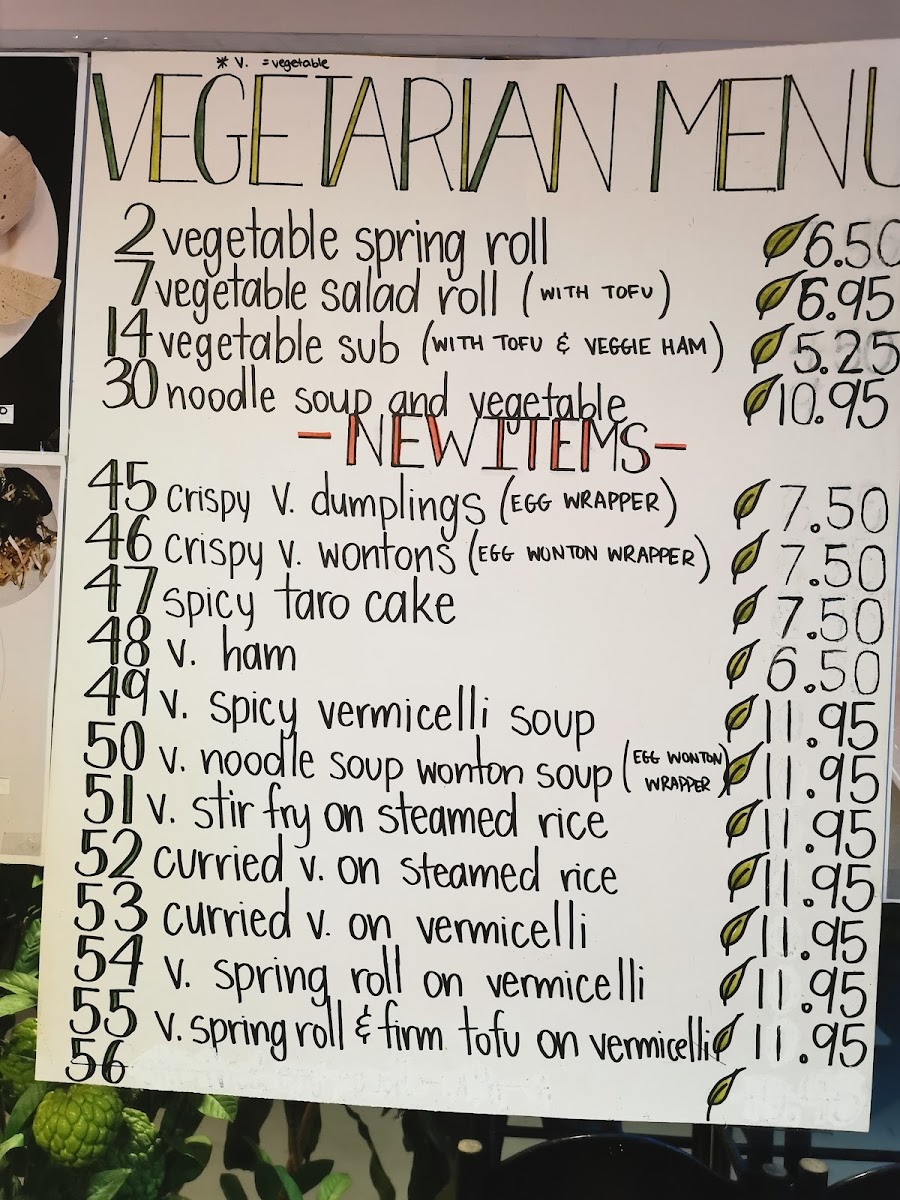 * V. = vegetable
VEGETARIAN MENU
2 vegetable spring roll 6.50
7 vegetable salad roll (WITH TOFU) 6.95
14 vegetable sub (WITH TOFU & VEGGIE HAM) 5.25
30 noodle soup and vegetable 10.95
- NEW ITEMS -
45 crispy v. dumplings (EGG WRAPPER) 7.50
46 crispy v. wontons (EGG WONTON WRAPPER) 7.50
47 spicy taro cake 7.50
48 v. ham 6.50
49 v. spicy vermicelli soup 11.95
50 v. noodle soup wonton soup (EGG WONTON WRAPPER) 11.95
51 v. stir fry on steamed rice 11.95
52 curried v. on steamed rice 11.95
53 curried v. on vermicelli 11.95
54 v. spring roll on vermicelli 11.95
55 v. spring roll & firm tofu on vermicelli 11.95
56